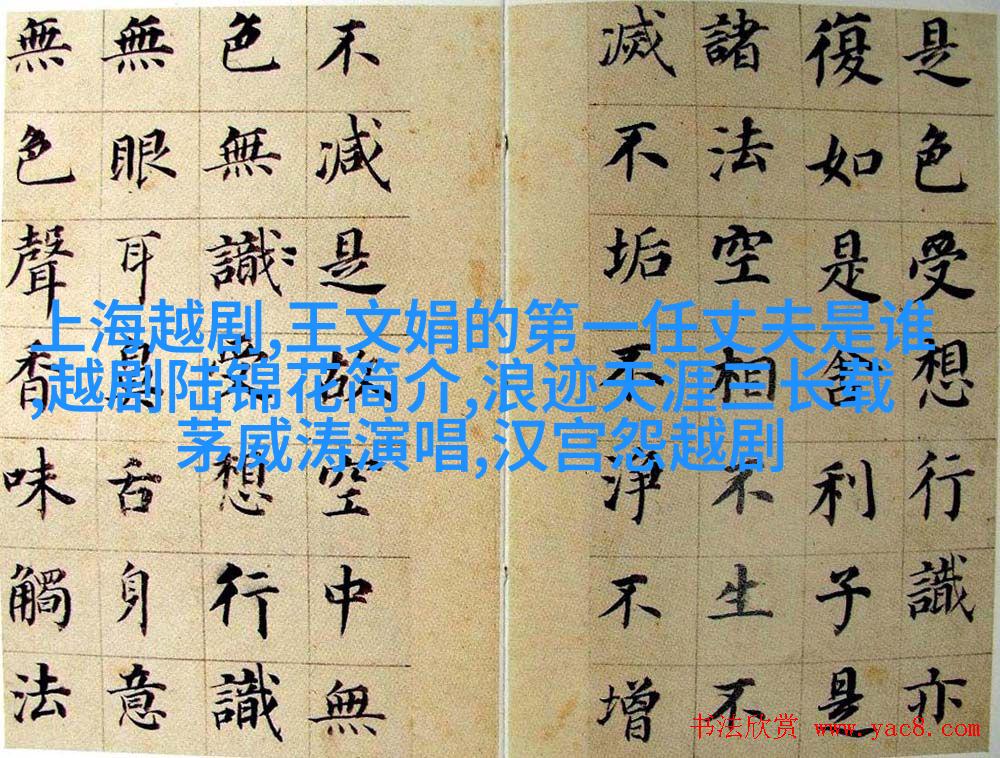 是色受想行識亦
復如是舍利子是
諸法空相不生不
滅不垢不淨不增
不減是故空中無
色無識受想行識
無眼耳鼻舌身意
無色聲香味觸法
上海越剧,王文娟的第一任丈夫是谁
,越剧陆锦花简介,浪迹天涯三长载
茅威涛演唱,汉宫怨越剧
书法欣赏 www.yac8.com